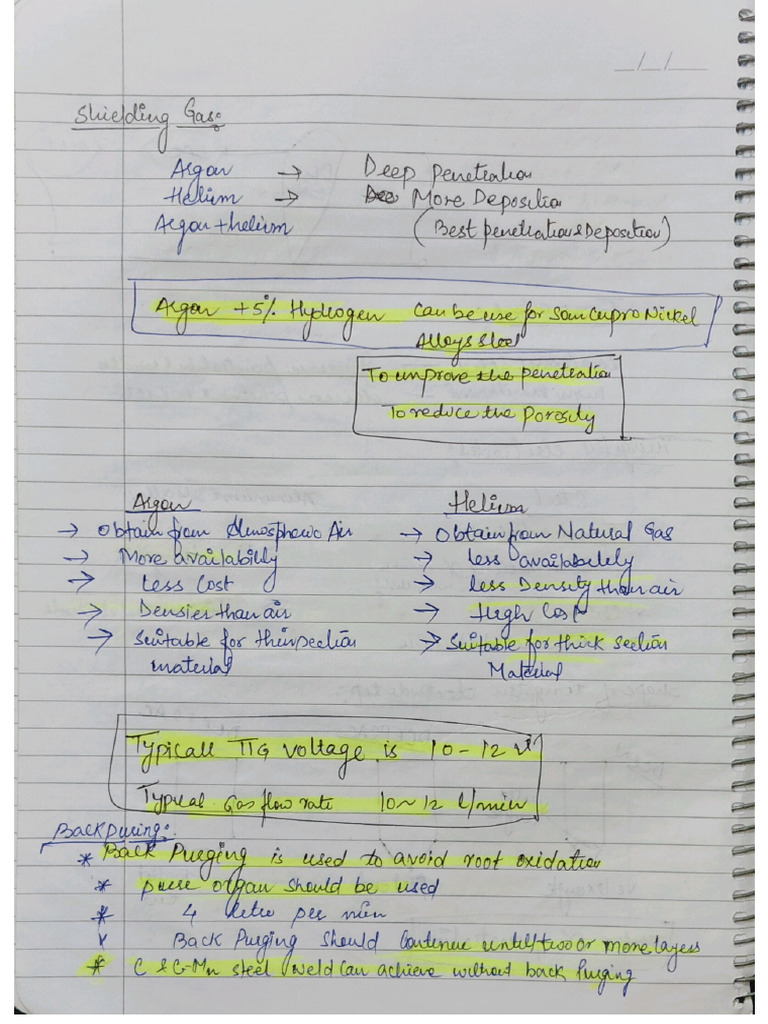 __/__/____
Shielding Gas:
Argon → Deep penetration
Helium → More Deposition
Argon + helium (Best penetration & Deposition)
Argon + 5% Hydrogen can be use for som Cupro Nickel
Alloys Steel
To improve the penetration
To reduce the porosity
Argon Helium
→ Obtain from Atmospheric Air → Obtain from Natural Gas
→ More availability → less availability
→ Less Cost → less Density than air
→ Densier than air → High Cost
→ Suitable for thin section → Suitable for thick section
material Material
Typicall TIG voltage is 10-12 V
Typical Gas flow rate 10~12 l/min
Back puring:
* Back Purging is used to avoid root oxidation
* puree argan should be used
* 4 letre per min
* Back Purging should Contenue untill two or more layers
* C & C-Mn steel Weld can achieve without back Purging